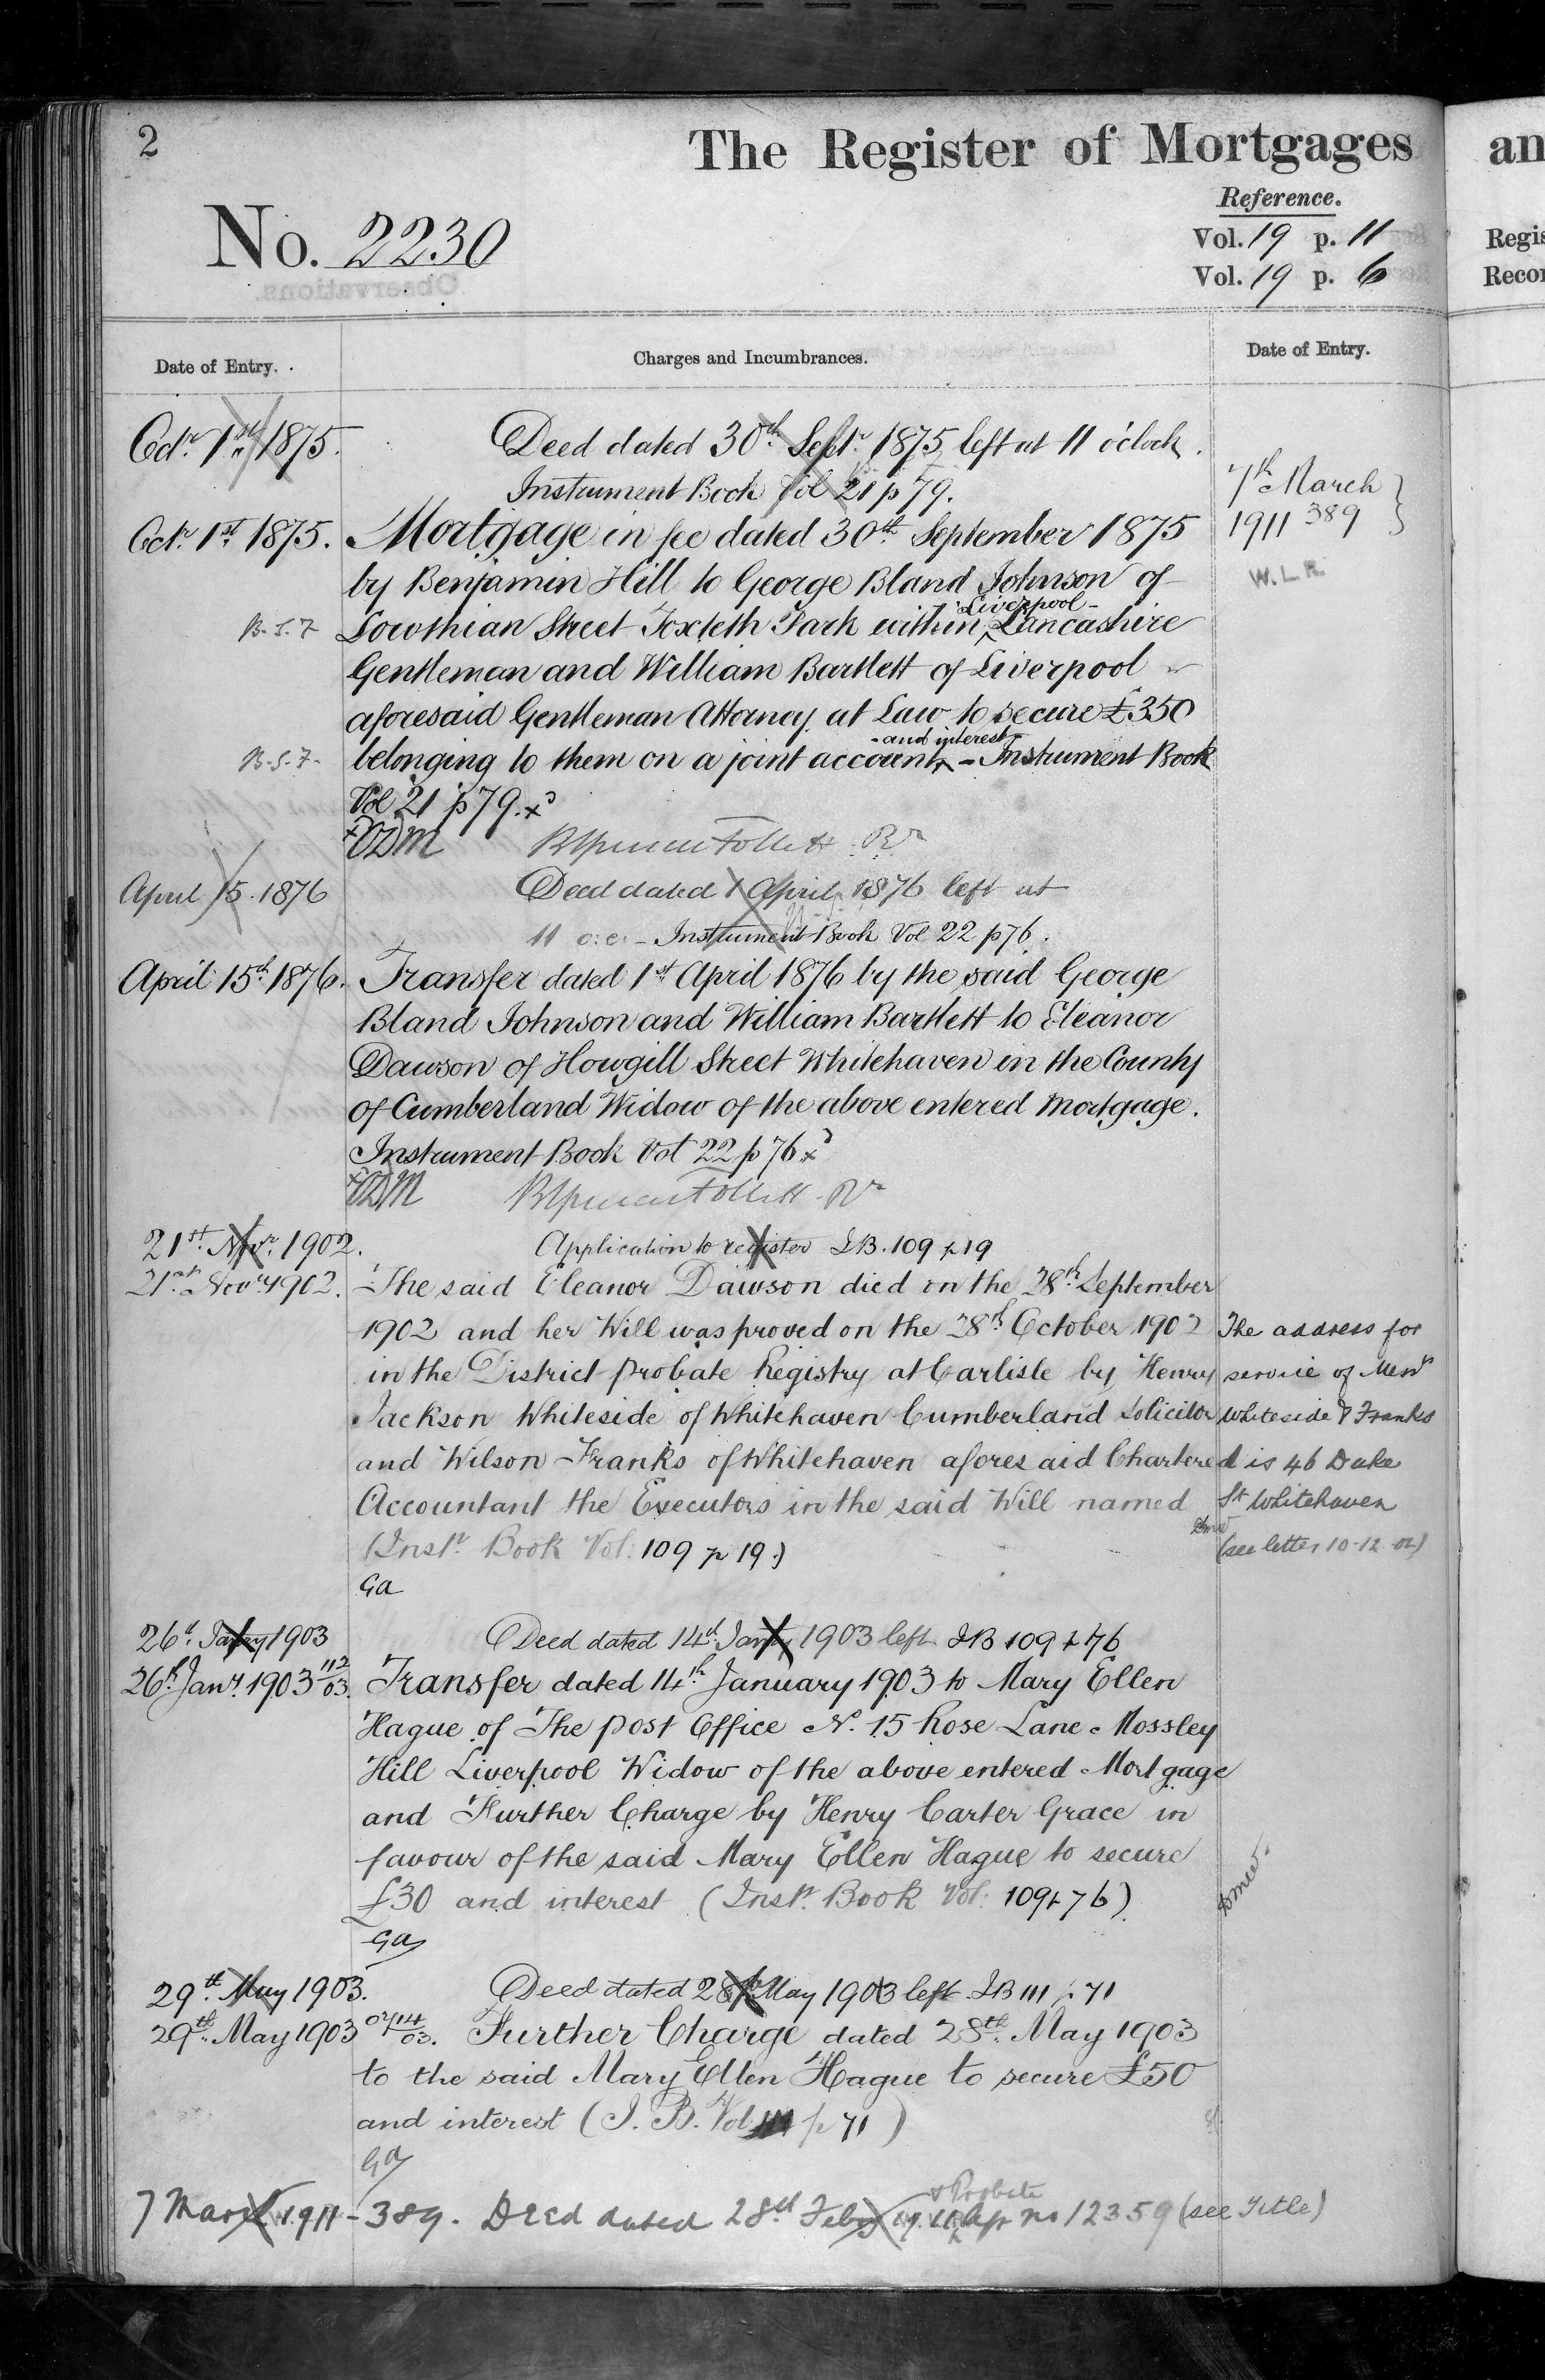 2
The Register of Mortgages
an
Reference.
No. 2230
Vol. 19 p. 11
Vol. 19 p. 6
Regis
Recor
Observations.
Date of Entry.
Charges and Incumbrances.
Date of Entry.
Octr. 1st 1875.
Deed dated 30th Septr. 1875 left at 11 o'clock.
Instrument Book Vol 21 p 79.
7th March
1911 389
W.L.R.
Octr. 1st 1875.
Mortgage in fee dated 30th September 1875
by Benjamin Hill to George Bland Johnson of
Liverpool
B.S.F. Lowthian Street Toxteth Park within ^ Lancashire
Gentleman and William Bartlett of Liverpool
aforesaid Gentleman Attorney at Law to secure £350
- and interest -
B.S.F. belonging to them on a joint account ^ - Instrument Book
Vol 21 p 79. x
x ODM Rr
April 15. 1876
Deed dated 1 April 1876 left at
11 o.c. - Instrument Book Vol 22 p 76.
April 15th 1876.
Transfer dated 1st April 1876 by the said George
Bland Johnson and William Bartlett to Eleanor
Dawson of Howgill Street Whitehaven in the County
of Cumberland Widow of the above entered Mortgage.
Instrument Book Vol 22 p 76 x
x ODM Rr
21st Novr. 1902.
Application to register I.B. 109 p 19
21st Novr. 1902.
The said Eleanor Dawson died on the 28th September
1902 and her Will was proved on the 28th October 1902
in the District Probate Registry at Carlisle by Henry
Jackson Whiteside of Whitehaven Cumberland Solicitor
and Wilson Franks of Whitehaven aforesaid Chartered
Accountant the Executors in the said Will named
(Instr. Book Vol: 109 p 19.)
Ga
The address for
service of Messrs
Whiteside & Franks
is 46 Duke
St Whitehaven
(see letter 10-12-02)
26th Jany 1903
Deed dated 14th Jany 1903 left I.B 109 p 76
26th Jany. 1903 112/03.
Transfer dated 14th January 1903 to Mary Ellen
Hague of The Post Office No. 15 Rose Lane Mossley
Hill Liverpool Widow of the above entered Mortgage
and Further Charge by Henry Carter Grace in
favour of the said Mary Ellen Hague to secure
£30 and interest (Instr. Book Vol: 109 p 76).
Ga
29th May 1903.
Deed dated 28th May 1903 left I.B 111 p 71
29th May 1903
Further Charge dated 28th May 1903
to the said Mary Ellen Hague to secure £50
and interest (I. B. Vol 111 p 71)
Ga
& Probate
7 March 1911 - 389. Deed dated 28th Feby 1911 ^ App no 12359 (see Title)